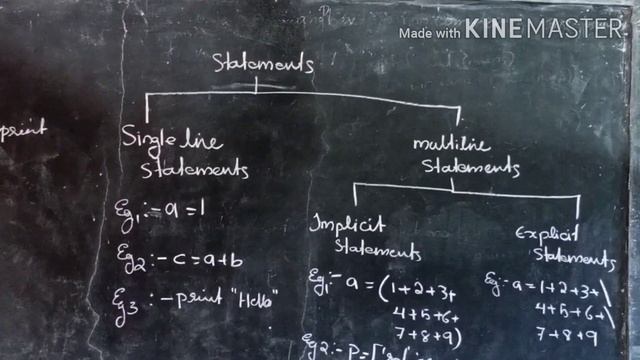 Made with KINEMASTER
Statements
print
Single line
Statements
Eg1:- a = 1
Eg2:- c = a+b
Eg3:- print "Hello"
multiline
Statements
Implicit
Statements
Eg1:- a = (1+2+3+
4+5+6+
7+8+9)
Eg2:- P = [
Explicit
Statements
Eg:- a = 1+2+3+\
4+5+6+\
7+8+9